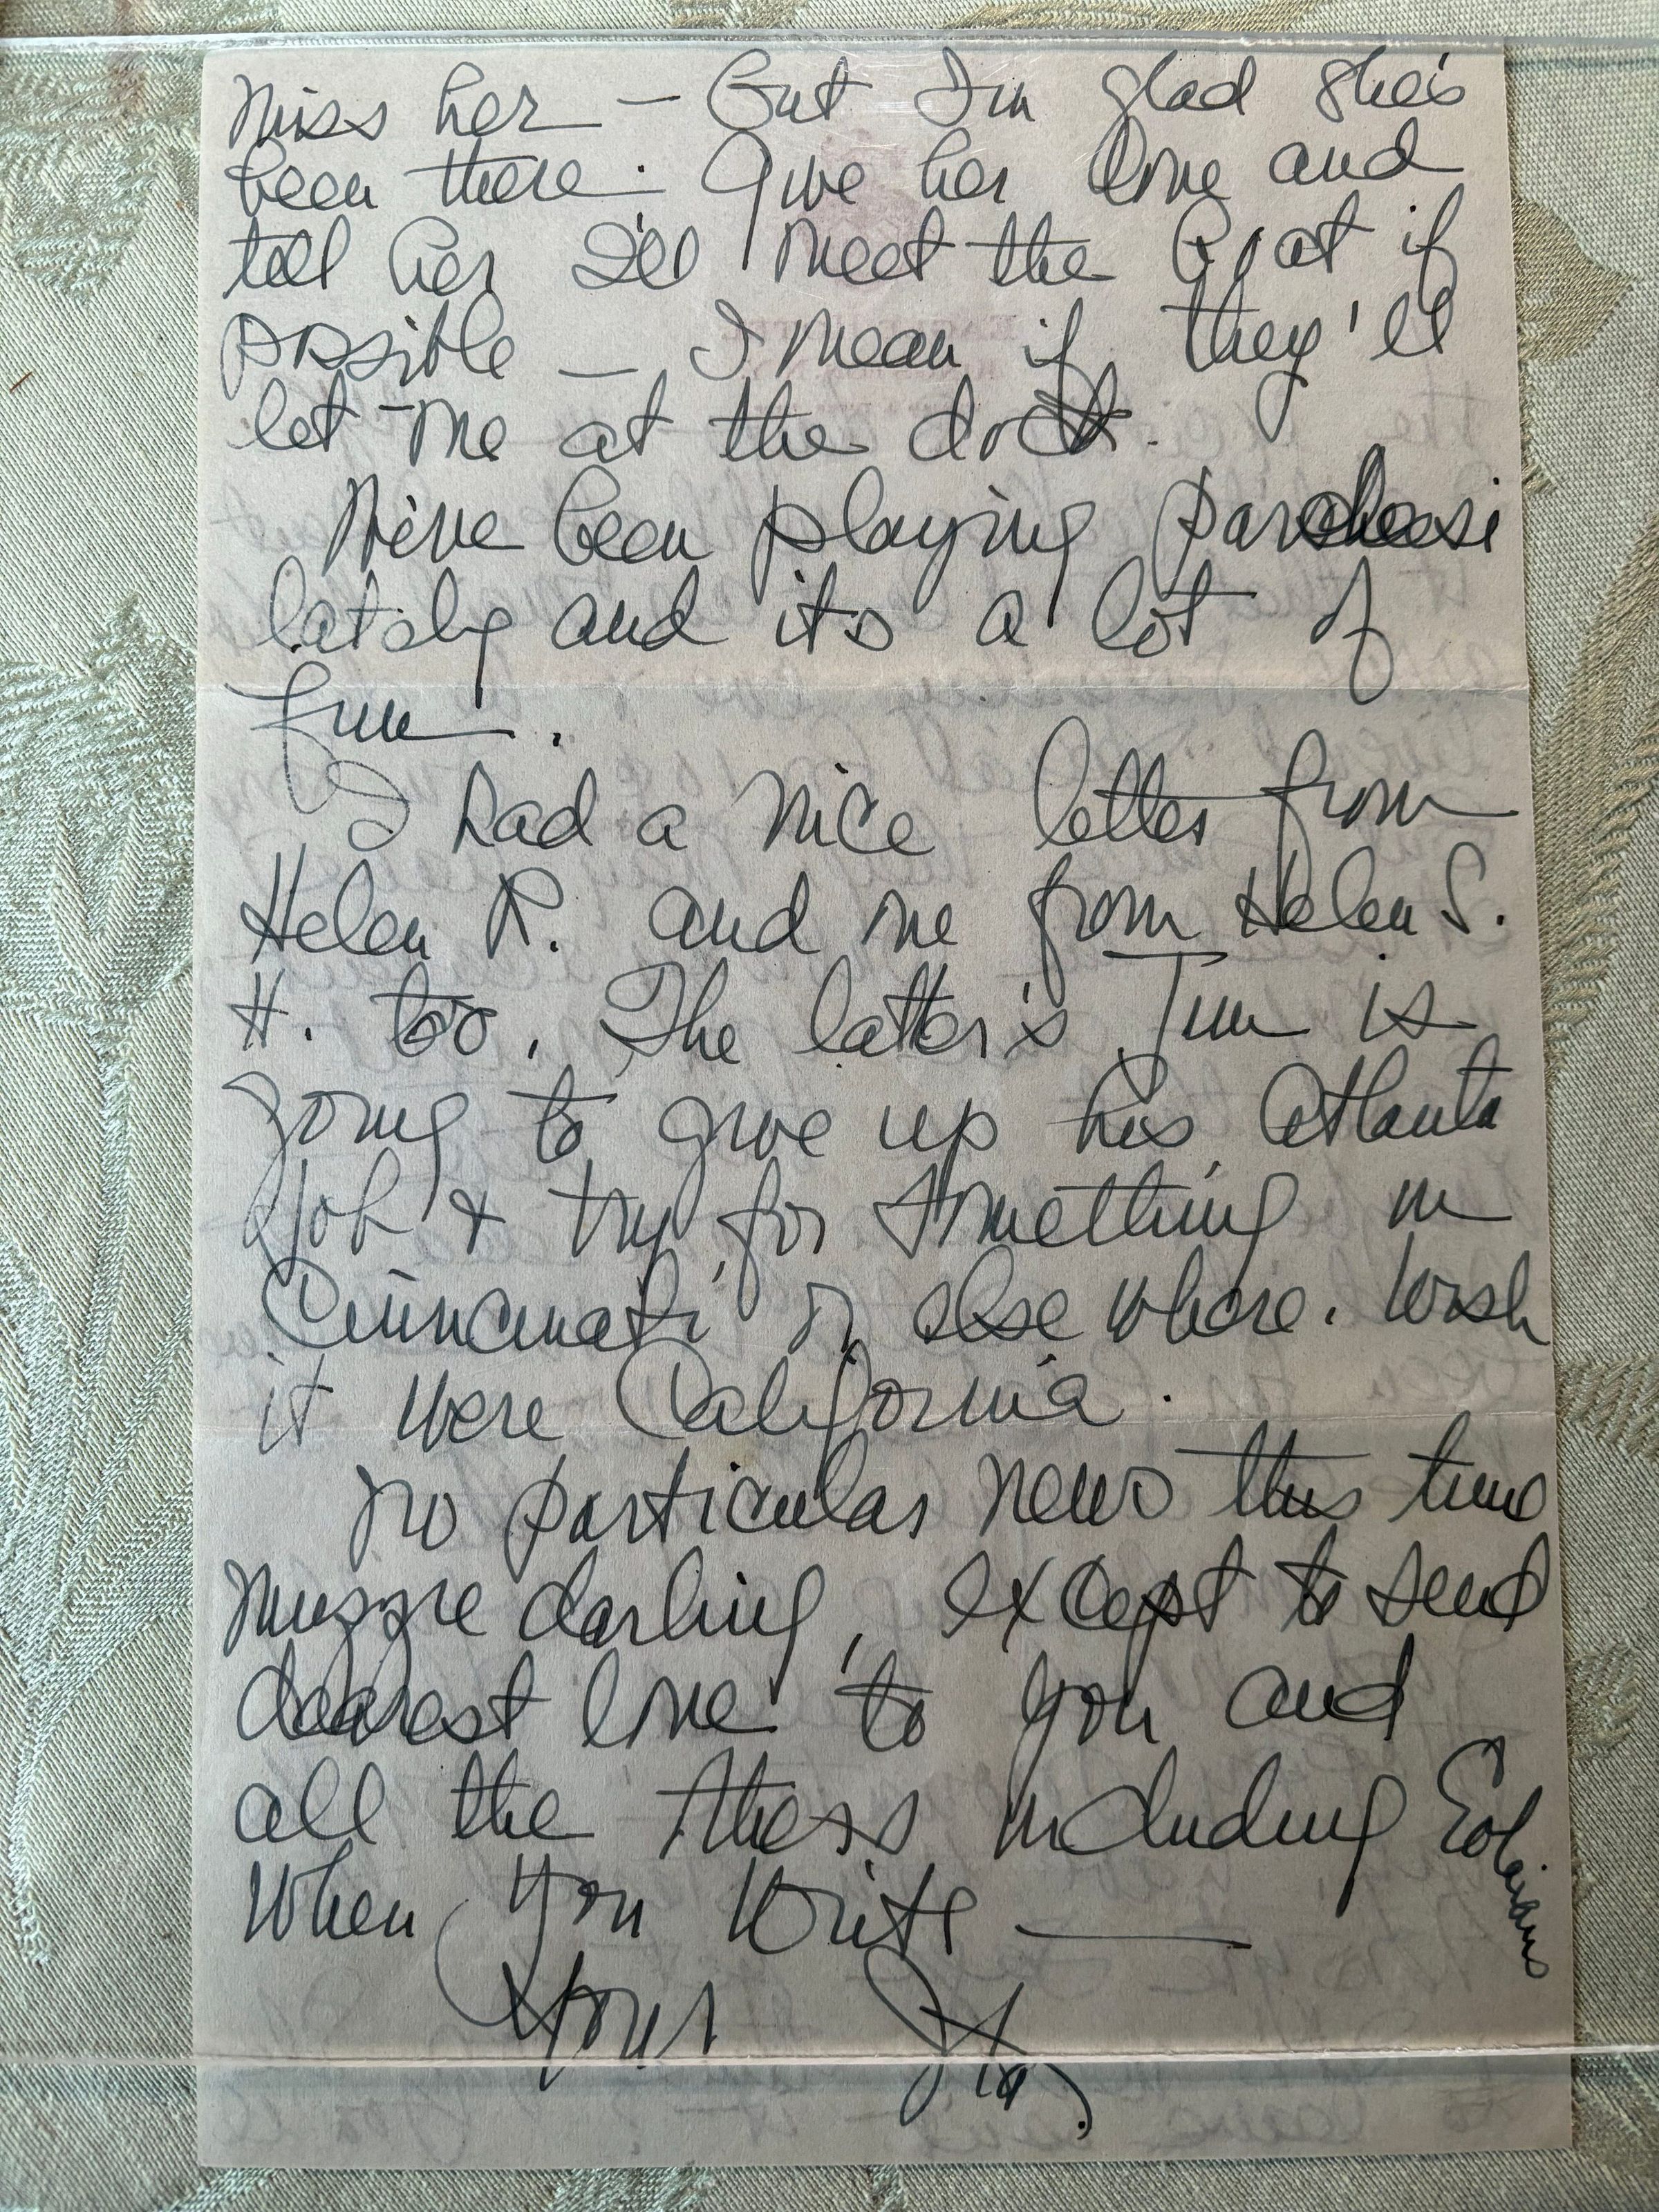 miss her — But I'm glad she's
been there. Give her love and
tell her I'll meet the boat if
possible — I mean if they'll
let me at the dock.
We've been playing parcheesi
lately and its a lot of
fun.
I had a nice letter from
Helen R. and one from Helen S.
H. too. The latter's Jim is
going to give up his Atlanta
job & try for something in
Cinncinati or elsewhere. Wish
it were California.
No particular news this time
darling, except to send
dearest love to you and
all the including
When you write —
Yours